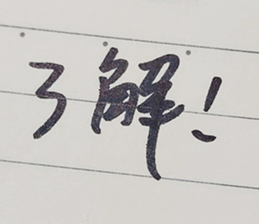 了解!